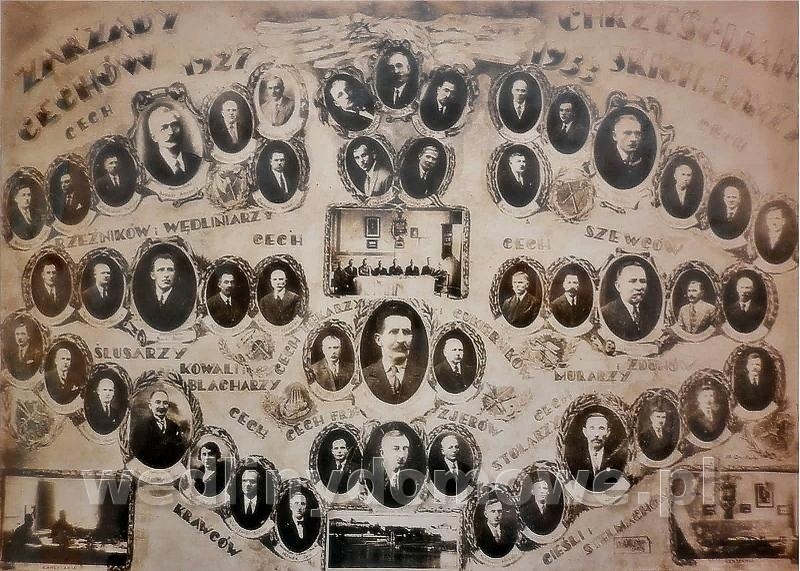 ZARZĄDY
CECHÓW 1927
1933 CHRZEŚCIJAŃ
SKICH
CECH
RZEŹNIKÓW i WĘDLINIARZY
CECH
SZEWCÓW
CECH
ŚLUSARZY
KOWALI i
BLACHARZY
CECH PIEKARZY
i CUKIERNIKÓW
MURARZY i
ZDUNÓW
CECH
CECH FRYZJERÓW
CECH
STOLARZY
KRAWCÓW
CIEŚLI i
STELMACHÓW
wedlinydomowe.pl